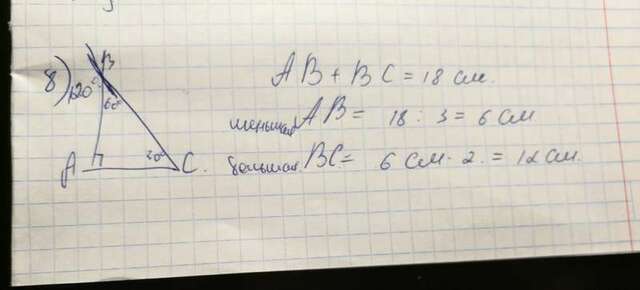 8)
B
120°
60°
A
30°
C.
AB + BC = 18 см.
меньшая AB = 18 : 3 = 6 см
большая BC = 6 см · 2 = 12 см.